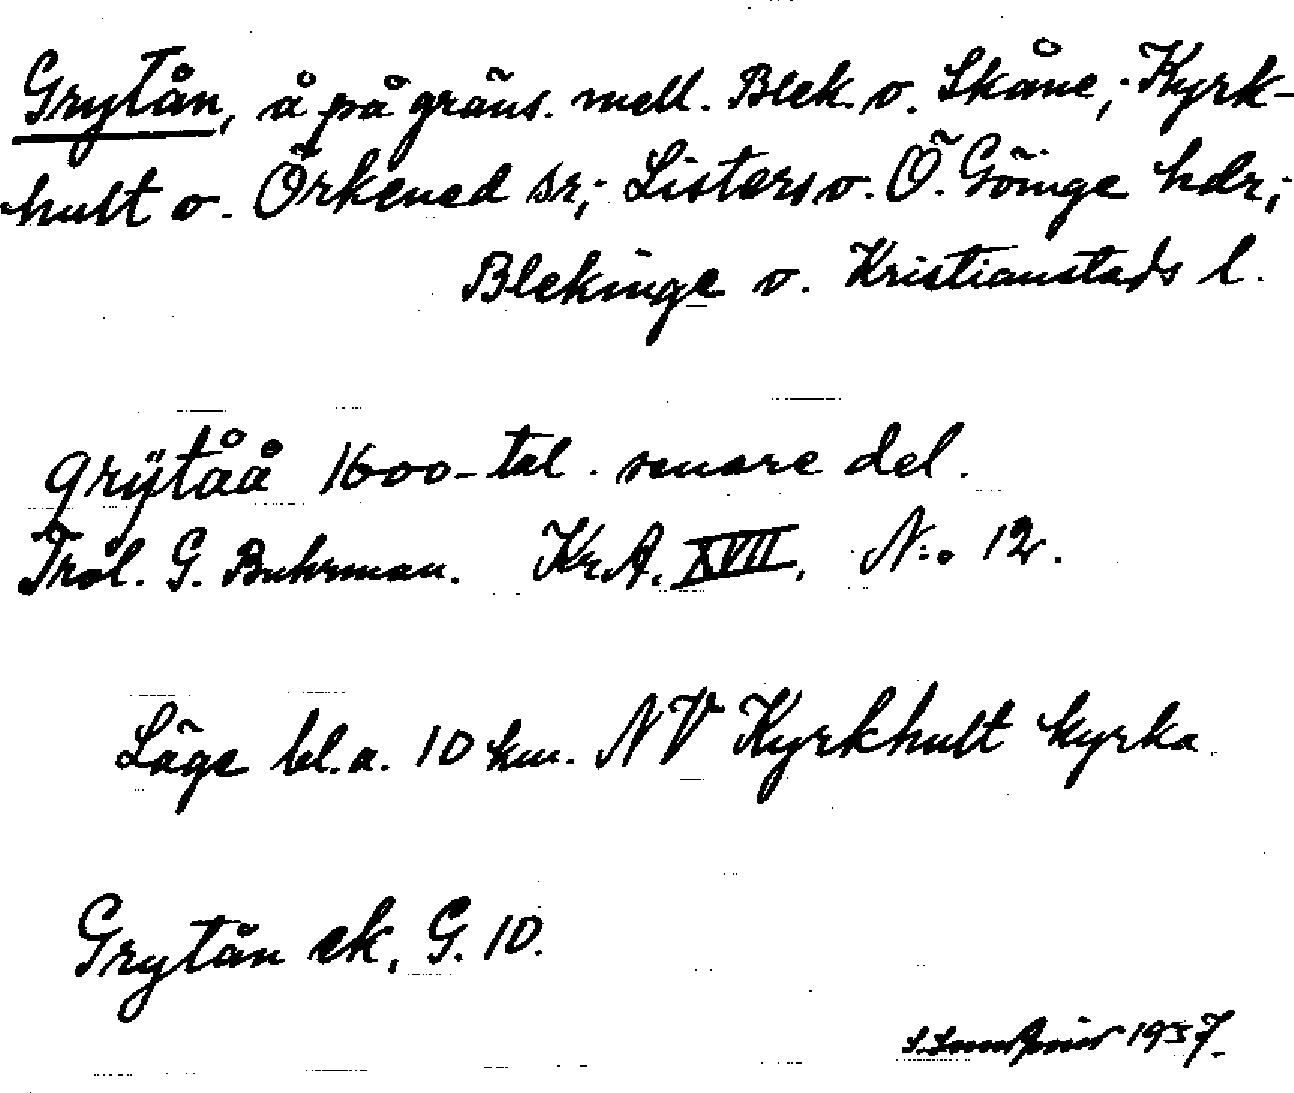 Grytån, å på gräns. mell. Blek. o. Skåne; Kyrk-
hult o. Örkened sr; Listers o. Ö. Göinge hdr;
Blekinge o. Kristianstads l.
grÿtåå 1600-tal. senare del.
Trol. G. Buhrman. KrA. XVII, N:o 12.
Läge bl.a. 10 km. NV Kyrkhult kyrka.
Grytån ek, G. 10.
1957.